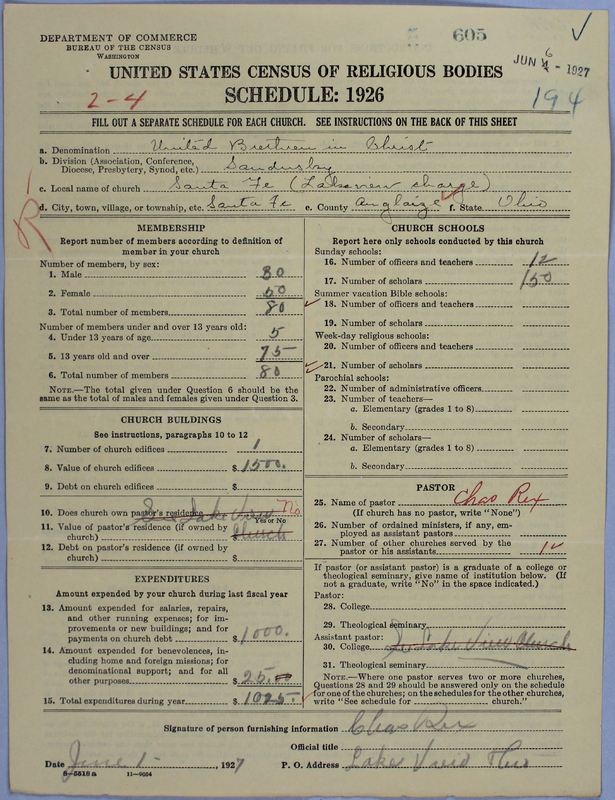 DEPARTMENT OF COMMERCE
BUREAU OF THE CENSUS
WASHINGTON
605
JUN 6 1927
UNITED STATES CENSUS OF RELIGIOUS BODIES
SCHEDULE: 1926
2-4
194
FILL OUT A SEPARATE SCHEDULE FOR EACH CHURCH. SEE INSTRUCTIONS ON THE BACK OF THIS SHEET
a. Denomination United Brethren in Christ
b. Division (Association, Conference,
Diocese, Presbytery, Synod, etc.) Sandusky
c. Local name of church Santa Fe (Lakeview charge)
d. City, town, village, or township, etc. Santa Fe e. County Auglaize f. State Ohio
R
MEMBERSHIP
Report number of members according to definition of
member in your church
Number of members, by sex:
1. Male 30
2. Female 50
3. Total number of members 80
Number of members under and over 13 years old:
4. Under 13 years of age 5
5. 13 years old and over 75
6. Total number of members 80
NOTE.—The total given under Question 6 should be the
same as the total of males and females given under Question 3.
CHURCH BUILDINGS
See instructions, paragraphs 10 to 12
7. Number of church edifices 1
8. Value of church edifices $1500.
9. Debt on church edifices $
10. Does church own pastor's residence See Lake View No
Yes or No
11. Value of pastor's residence (if owned by
church) $ Church
12. Debt on pastor's residence (if owned by
church) $
EXPENDITURES
Amount expended by your church during last fiscal year
13. Amount expended for salaries, repairs,
and other running expenses; for im-
provements or new buildings; and for
payments on church debt $1000.
14. Amount expended for benevolences, in-
cluding home and foreign missions; for
denominational support; and for all
other purposes $25.00
15. Total expenditures during year $1025.
CHURCH SCHOOLS
Report here only schools conducted by this church
Sunday schools:
16. Number of officers and teachers 12
17. Number of scholars 150
Summer vacation Bible schools:
18. Number of officers and teachers
19. Number of scholars
Week-day religious schools:
20. Number of officers and teachers
21. Number of scholars
Parochial schools:
22. Number of administrative officers
23. Number of teachers—
a. Elementary (grades 1 to 8)
b. Secondary
24. Number of scholars—
a. Elementary (grades 1 to 8)
b. Secondary
PASTOR
25. Name of pastor Chas Rex
(If church has no pastor, write "None")
26. Number of ordained ministers, if any, em-
ployed as assistant pastors
27. Number of other churches served by the
pastor or his assistants
If pastor (or assistant pastor) is a graduate of a college or
theological seminary, give name of institution below. (If
not a graduate, write "No" in the space indicated.)
Pastor:
28. College
29. Theological seminary
Assistant pastor:
30. College See Lake View Church
31. Theological seminary
NOTE.—Where one pastor serves two or more churches,
Questions 28 and 29 should be answered only on the schedule
for one of the churches; on the schedules for the other churches,
write "See schedule for church."
Signature of person furnishing information Chas Rex
Official title
Date June 1- , 1927 P. O. Address Lake View Ohio
8-5518 a 11-9054